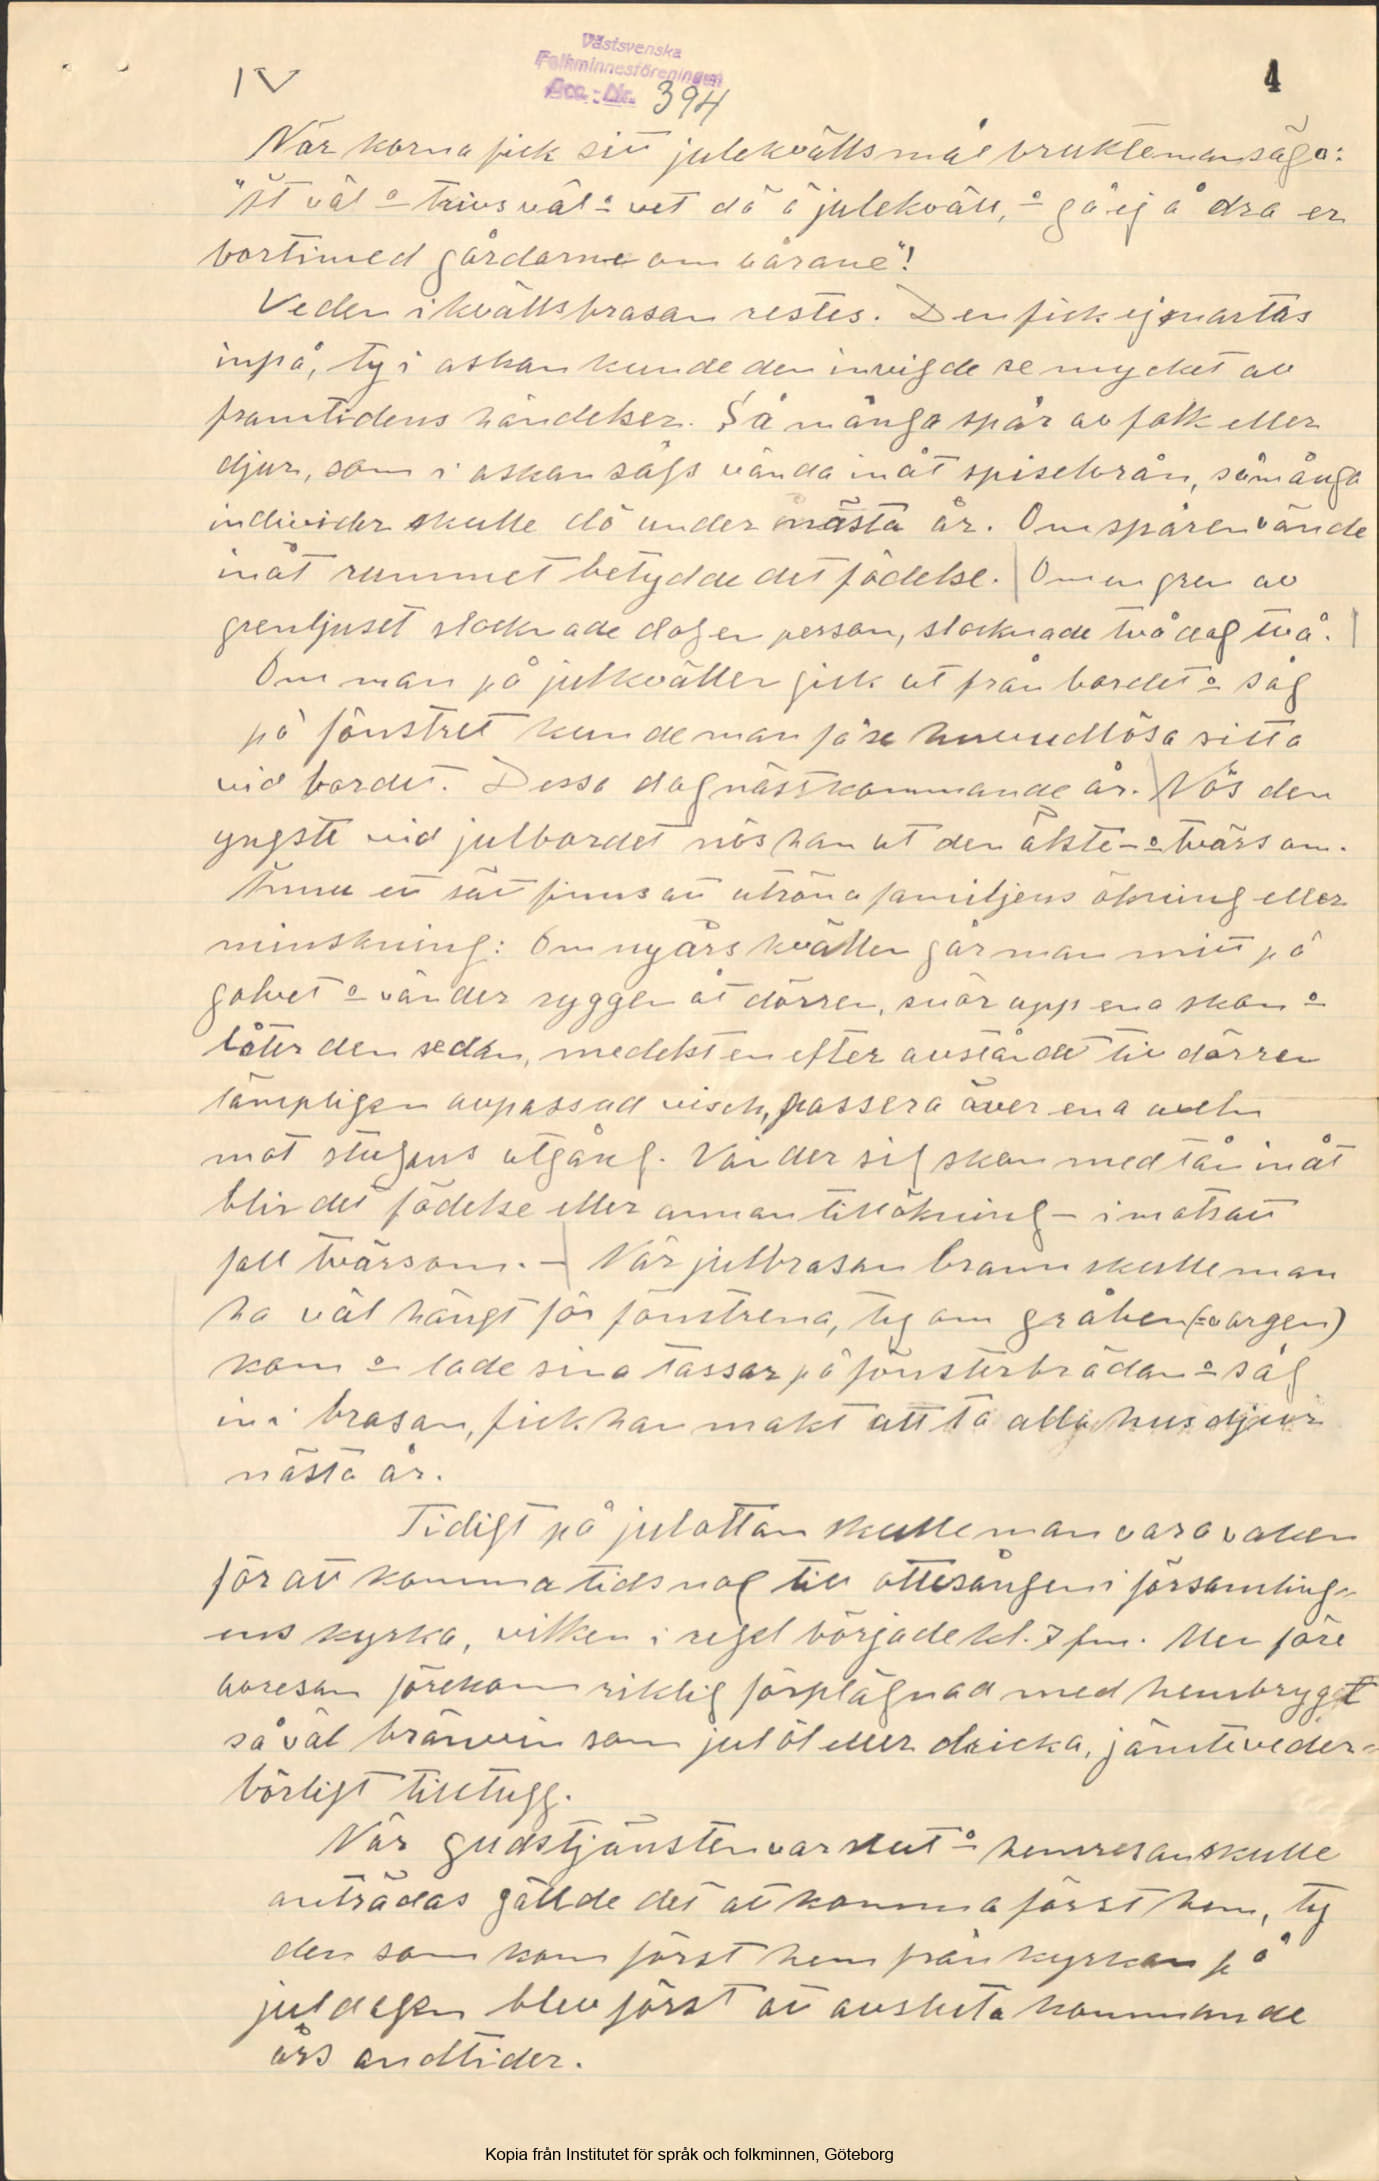 IV
Västsvenska
Folkminnesföreningen
Acc.-Nr. 394
4
När korna fick sitt julekvällsmål brukte man säga:
"Ät väl o trivs väl o vet dä ä julekväll, o gå ej å dra er
bortimed gårdarne om vårane"!
Veden i kvällsbrasan restes. Den fick ej snartas
inpå, ty i askan kunde den invigde se mycket av
framtidens händelser. Så många spår av folk eller
djur, som i askan sågs vända inåt spisebrån, så många
individer skulle dö under nästa år. Om spåren vände
inåt rummet betydde det födelse. Om en gren av
grenljuset slocknade dog en person, slocknade två dog två.
Om man på julkvällen gick ut från bordet o såg
på fönstret kunde man få se huvudlösa sitta
vid bordet. Dessa dog nästkommande år. Nös den
yngste vid julbordet nös han ut den älste - o tvärs om.
Ännu ett sätt finns att utröna familjens ökning eller
minskning: Om nyårskvällen går man mitt på
golvet o vänder ryggen åt dörren, snör upp ena skon o
låter den sedan, medelst en efter avståndet till dörren
lämpligen avpassad visch, passera över ena axeln
mot stugans utgång. Vänder sig skon med tån inåt
blir det födelse eller annan tillökning - i motsatt
fall tvärsom. - När julbrasan brann skulle man
ha väl hängt för fönstrena, ty om gråben (=vargen)
kom o lade sina tassar på fönsterbrädan o såg
in i brasan, fick han makt att ta alla husdjur
nästa år.
Tidigt på julottan skulle man vara vaken
för att komma tids nog till ottesången i församling-
ens kyrka, vilken i regel började kl. 7 fm. Men före
avresan förekom riklig förplägnad med hembrygt
såväl brännvin som julöl eller dricka, jämte veder-
börligt tilltugg.
När gudstjänsten var slut o hemresan skulle
anträdas gällde det att komma först hem, ty
den som kom först hem från kyrkan på
juldagen blev först att avsluta kommande
års andtider.
Kopia från Institutet för språk och folkminnen, Göteborg